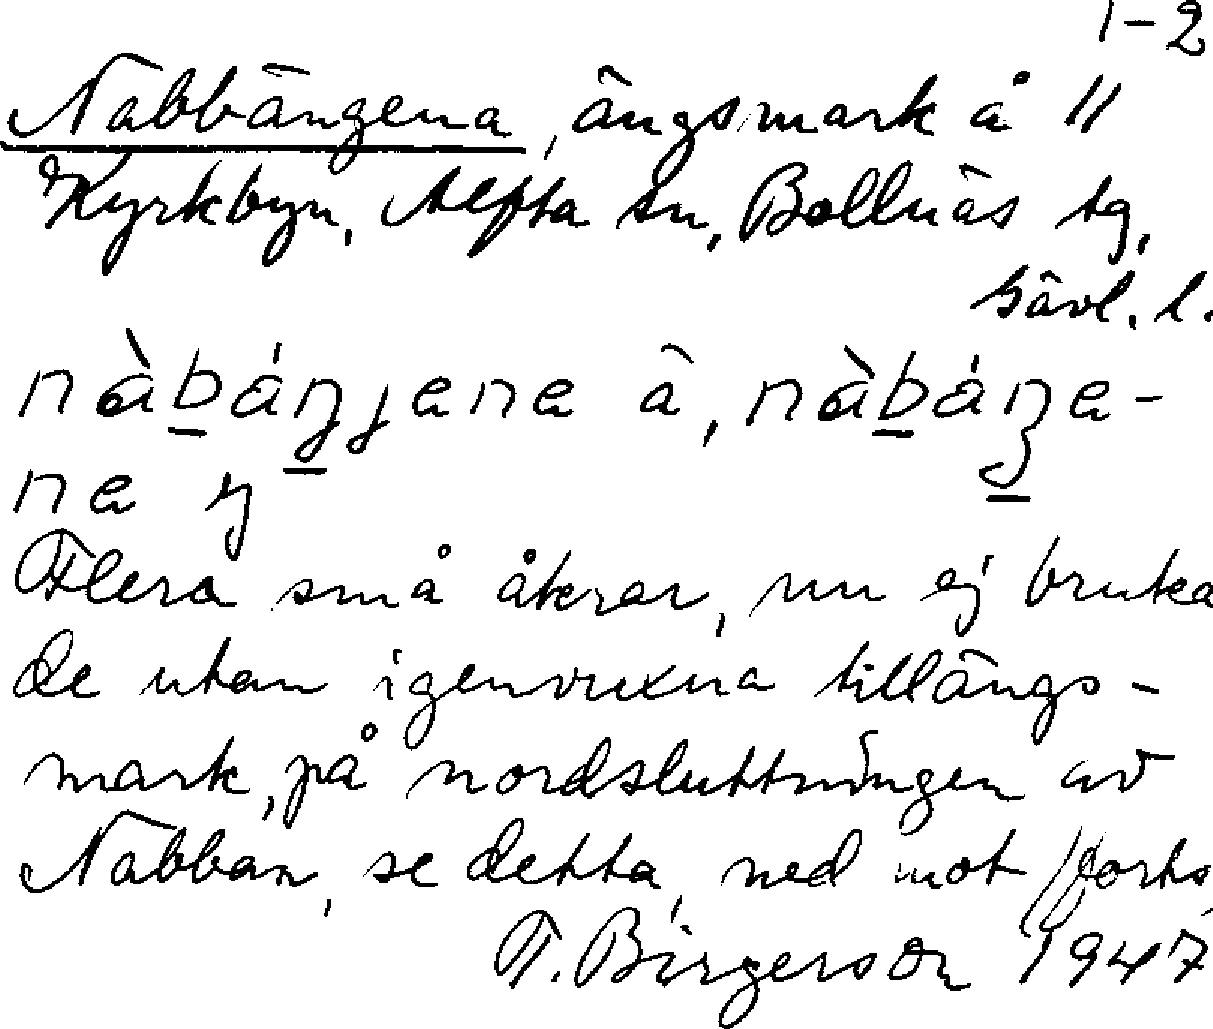 1-2
Nabbängena, ängsmark å //
Kyrkbyn, Alfta sn, Bollnäs tg,
Gävl. l.
nàbáŋɟena â, nàbáŋe-
na ŋ
Flera små åkrar, nu ej bruka
de utan igenvuxna till ängs-
mark, på nordsluttningen av
Nabban, se detta, ned mot /forts.
F. Birgerson 1947